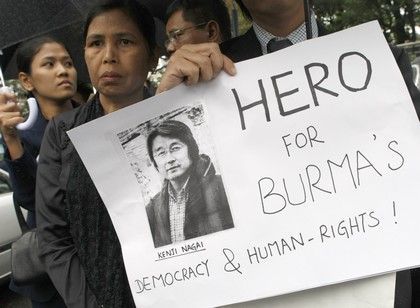 HERO
FOR
BURMA'S
KENJI NAGAI
DEMOCRACY & HUMAN-RIGHTS !